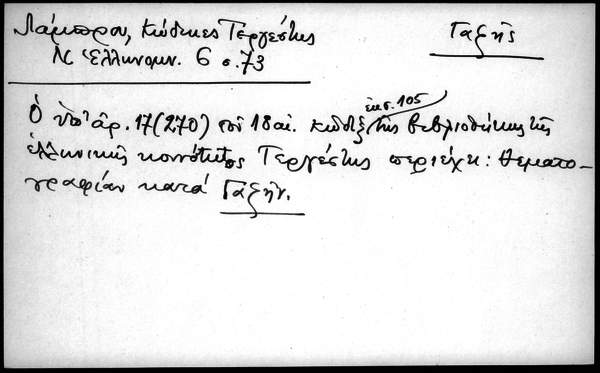 Λάμπρου, Κώδικες Τεργέστης
Ν Ἑλληνομν. 6 σ. 73
Γαζῆς
ἐκ σ. 105
Ὁ ὑπ' ἀρ. 17 (270) τοῦ 18 αἰ. κώδιξ τῆς βιβλιοθήκης τῆς
ἑλληνικῆς κοινότητος Τεργέστης περιέχει: Θεματο-
γραφίαν κατά Γαζῆν.